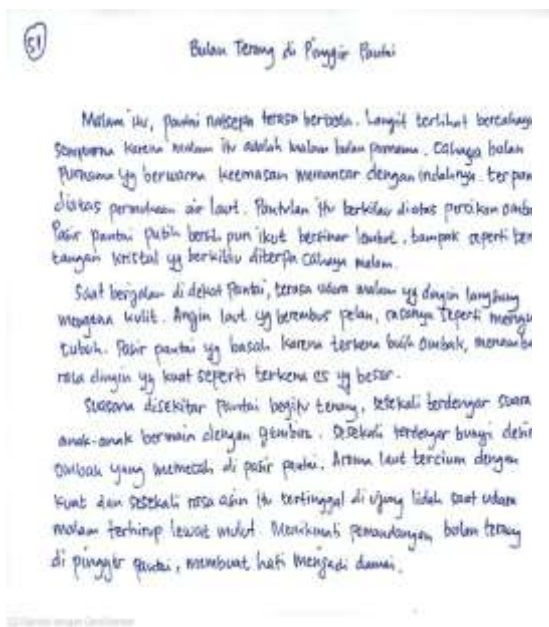 51
Bulan Terang di Pinggir Pantai
Malam itu, pantai natsepa terasa berbeda. Langit terlihat bercahaya
sempurna karena malam itu adalah malam bulan purnama. Cahaya bulan
purnama yg berwarna keemasan memancar dengan indahnya. ter
diatas permukaan air laut. Pantulan itu berkilau diatas percikan omba
Pasir pantai putih bersih pun ikut bersinar lembut, tampak seperti
tangan kristal yg berkilau diterpa cahaya malam.
Saat berjalan di dekat pantai, terasa udara malam yg dingin langsung
mengena kulit. Angin laut yg berembus pelan, rasanya seperti
tubuh. Pasir pantai yg basah karena terkena buih ombak,
rasa dingin yg kuat seperti terkena es yg besar.
Suasana disekitar pantai begitu tenang, sesekali terdengar suara
anak-anak bermain dengan gembira. Sesekali terdengar bunyi
ombak yang memecah di pasir pantai. Aroma laut tercium dengan
kuat dan sesekali rasa asin itu tertinggal di ujung lidah saat udara
malam terhirup lewat mulut. Menikmati pemandangan bulan terang
di pinggir pantai, membuat hati menjadi damai.